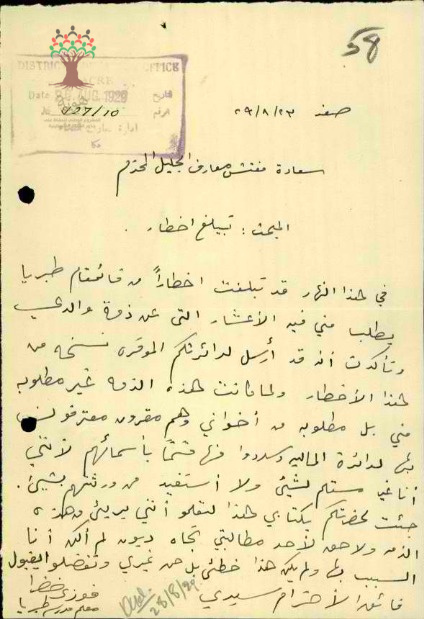 58
DISTRICT OFFICE
ACRE
Date AUG. 1929 تاريخ
No 127/10
صفد ٢٩/٨/٢٣
سعادة مفتش معارف الجليل المحترم
المبحث : تبيلغ اخطار .
في هذا النهار قد تبلغت اخطاراً من قائمقام طبريا
يطلب مني فيه الأعشار التى عن ذمة والدي
وتأكدت أنه قد أرسل لدائرتكم الموقره نسخه من
هذا الأخطار ولما كانت هذه الذمه غير مطلوبه
مني بل مطلوبه من أخواني وهم مقرون معترفون
بها لدائرة المالية وسددوا قسماً بأسمائهم لأنني
أنا غير مستلم لشيئ ولا أستفيد من ورثتهم بشيئ .
جئت لحضرتكم بكتابي هذا لتعلموا أنني بريئ من هذه
الذمه ولا حق لأحد مطالبتي تجاه ديون لم أكن أنا
السبب بها ولم يكن هذا خطئي بل من غيري وتفضلوا بقبول
فائق الأحترام سيدي
فوزي خضرا
معلم مدرسة طبريا
28/8/29